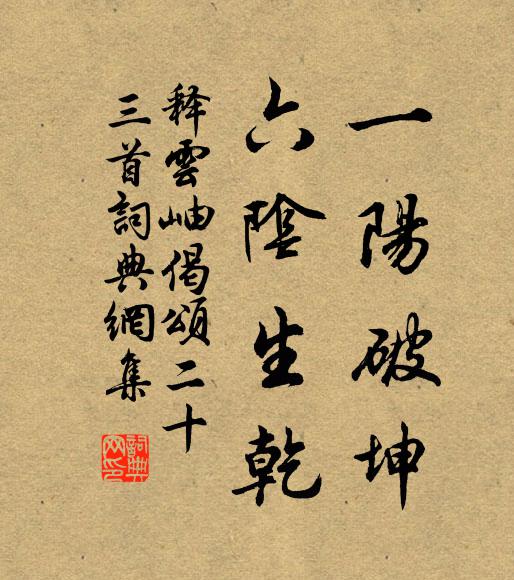 一陽破坤
六陰生乾
释雲岫偈頌二十
三首詞典網集
詞典网印